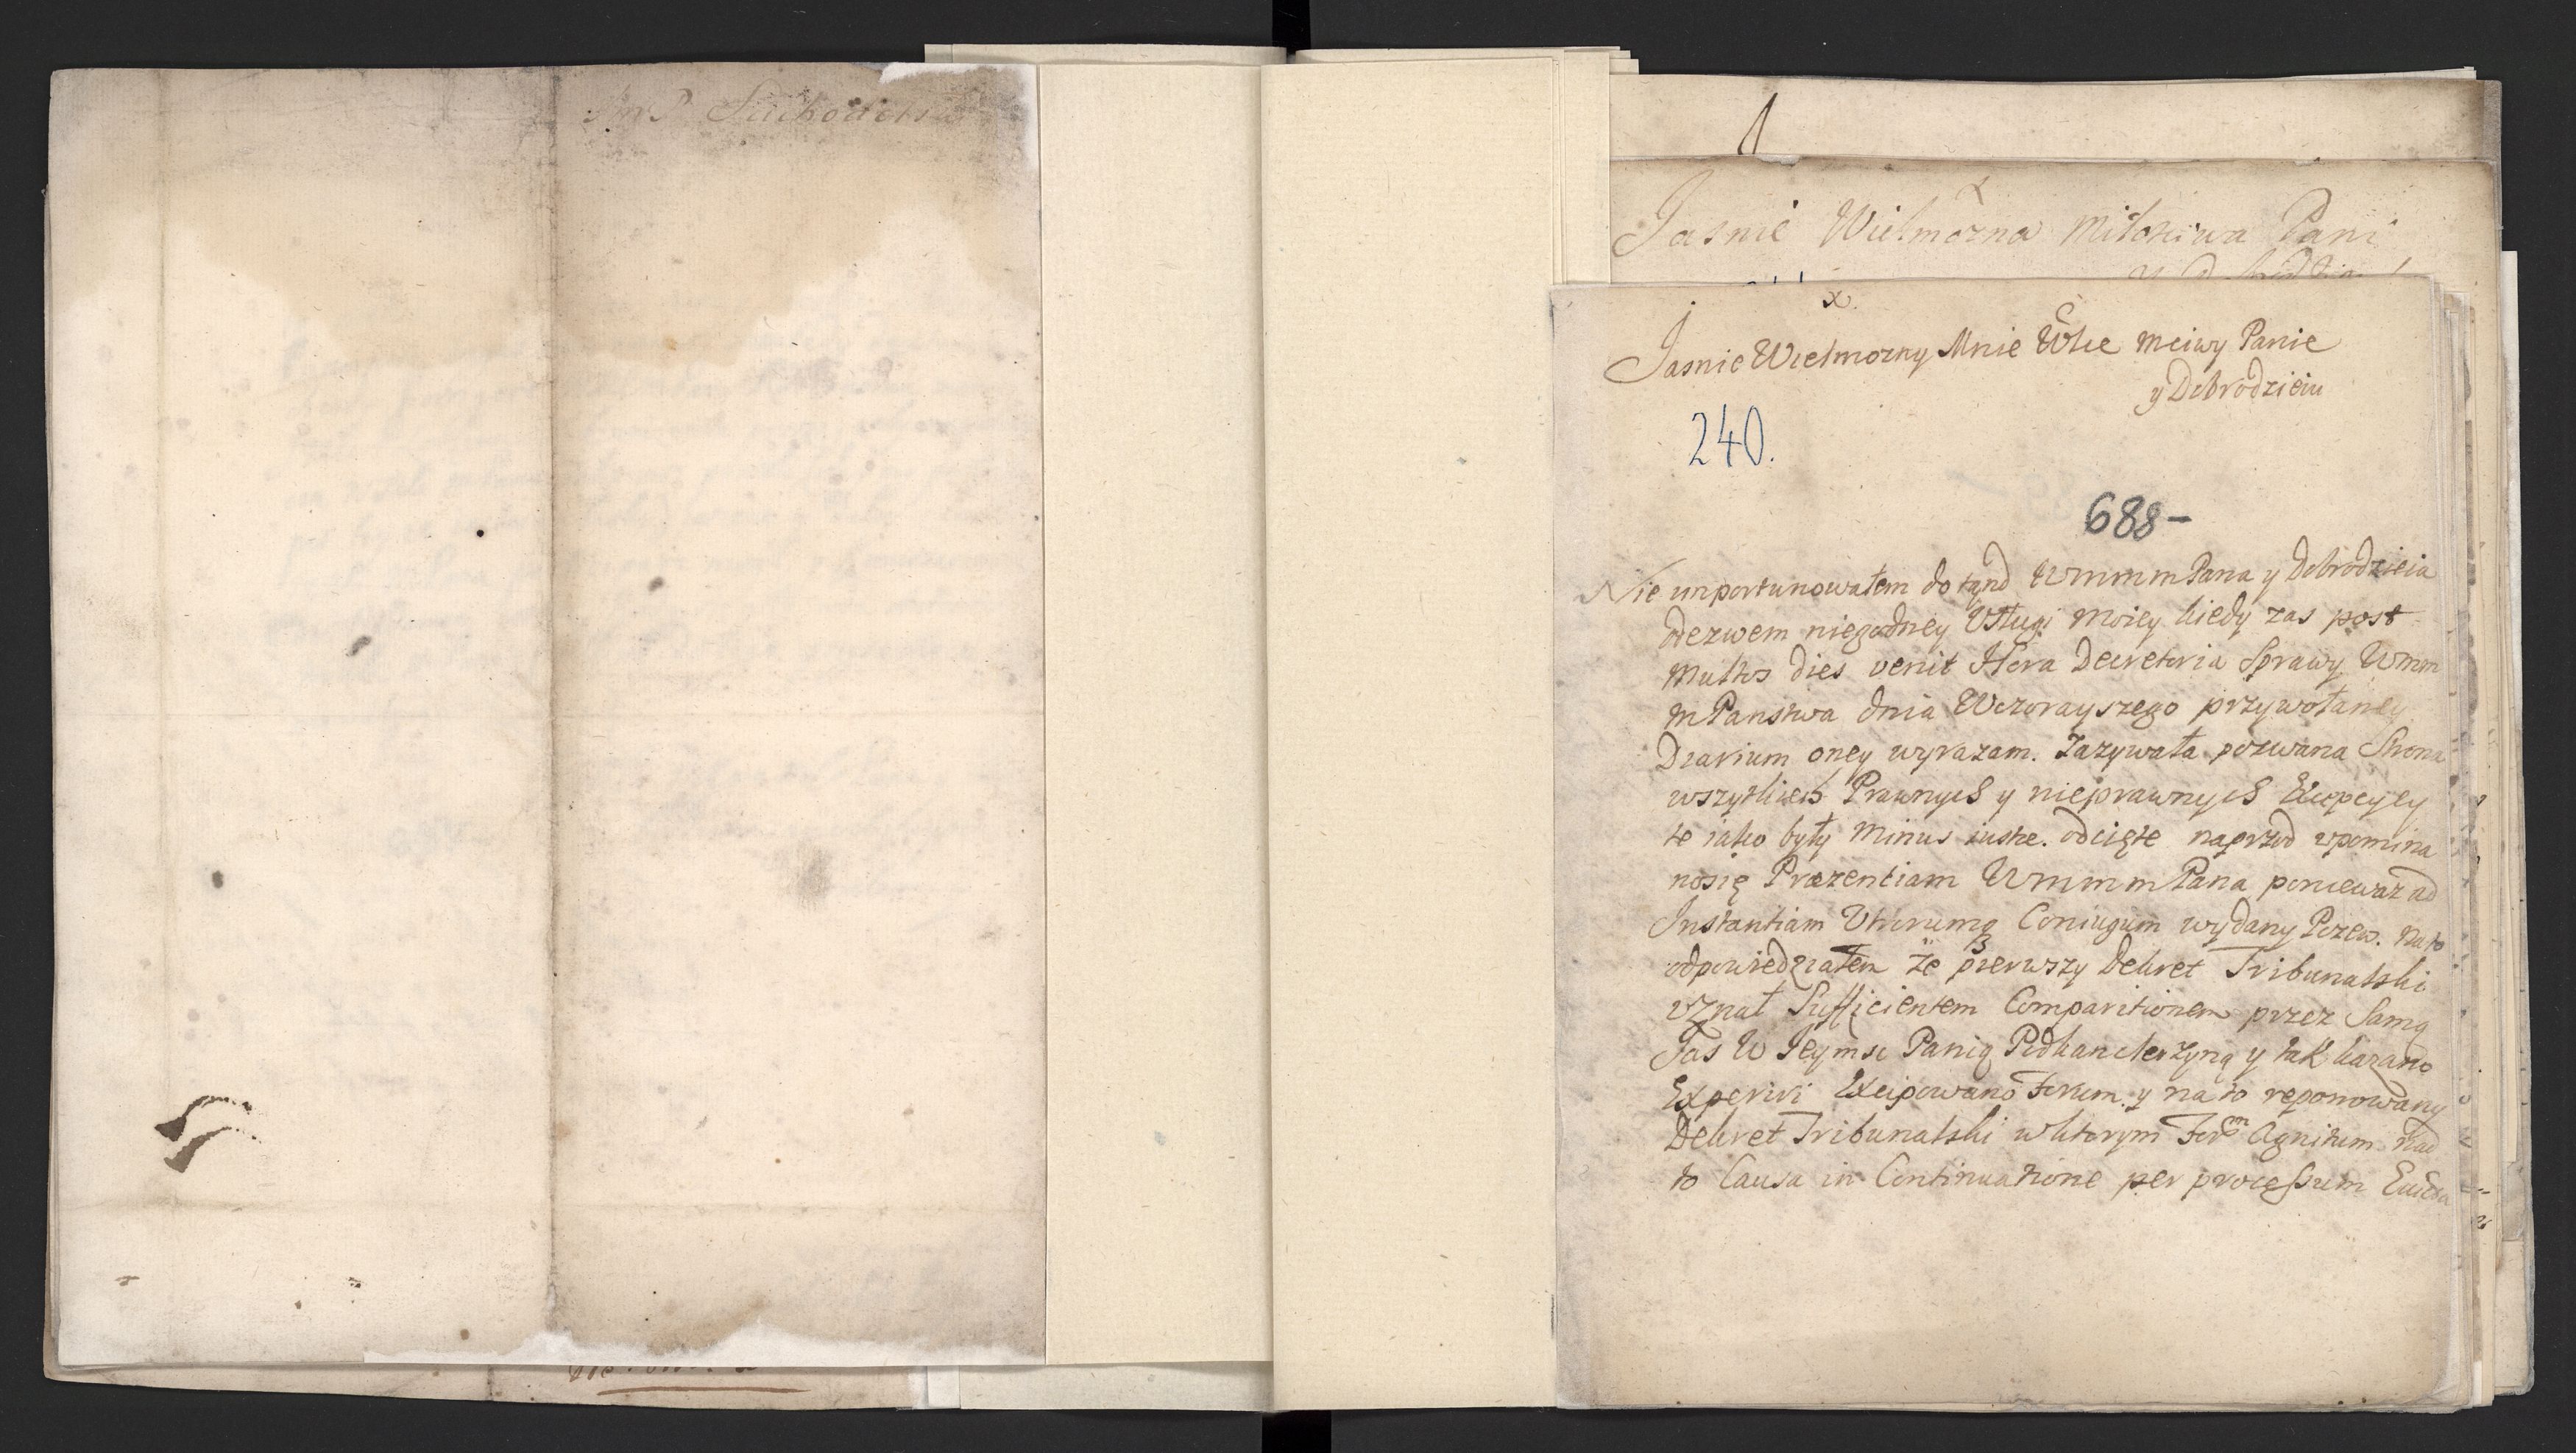 JmP Suchodols
Jasnie Wielmozna Miłosciwa Pani
x.
Jasnie Wielmozny Mnie Wlce Mciwy Panie
y Dobrodzieiu
240.
688-
Nie importunowałem do tąnd WmmmPana y Dobrodzieia
odezwem niegodney Usługi Moiey kiedy zas post
Multos dies venit Hora Decretoria Sprawy Wmm
mPanstwa dnia Wczorayszego przywołaney
Diarium oney wyrazam. Zazywała pozwana Strona
wszytkich Prawnych y nieprawnych Excepcyey
te iako były Minus iuste. odcięte naprzod wpomina
nosię Præzentiam WmmmPana poniewaz ad
Instantiam Utriusmq Coniugum wydany Pozew. Nato
odpowiedziałem że pierwszy Dekret Tribunalski
uznał Sufficientem Comparitionem przez Samą
Jas W Jeymsc Panią Podkanclerzyną y tak kazano
Experiri Excipowano Forum. y na to reponowany
Dekret Tribunalski wktorym Forum Agnitum Nad
to Causa in Continuatione per processum